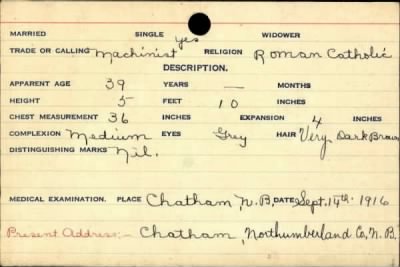 MARRIED SINGLE yes WIDOWER
TRADE OR CALLING Machinist RELIGION Roman Catholic
DESCRIPTION.
APPARENT AGE 39 YEARS — MONTHS
HEIGHT 5 FEET 10 INCHES
CHEST MEASUREMENT 36 INCHES EXPANSION 4 INCHES
COMPLEXION Medium EYES Grey HAIR Very Dark Brown
DISTINGUISHING MARKS Nil.
MEDICAL EXAMINATION. PLACE Chatham, N.B. DATE Sept. 14th. 1916
Present Address:- Chatham, Northumberland Co, N.B.